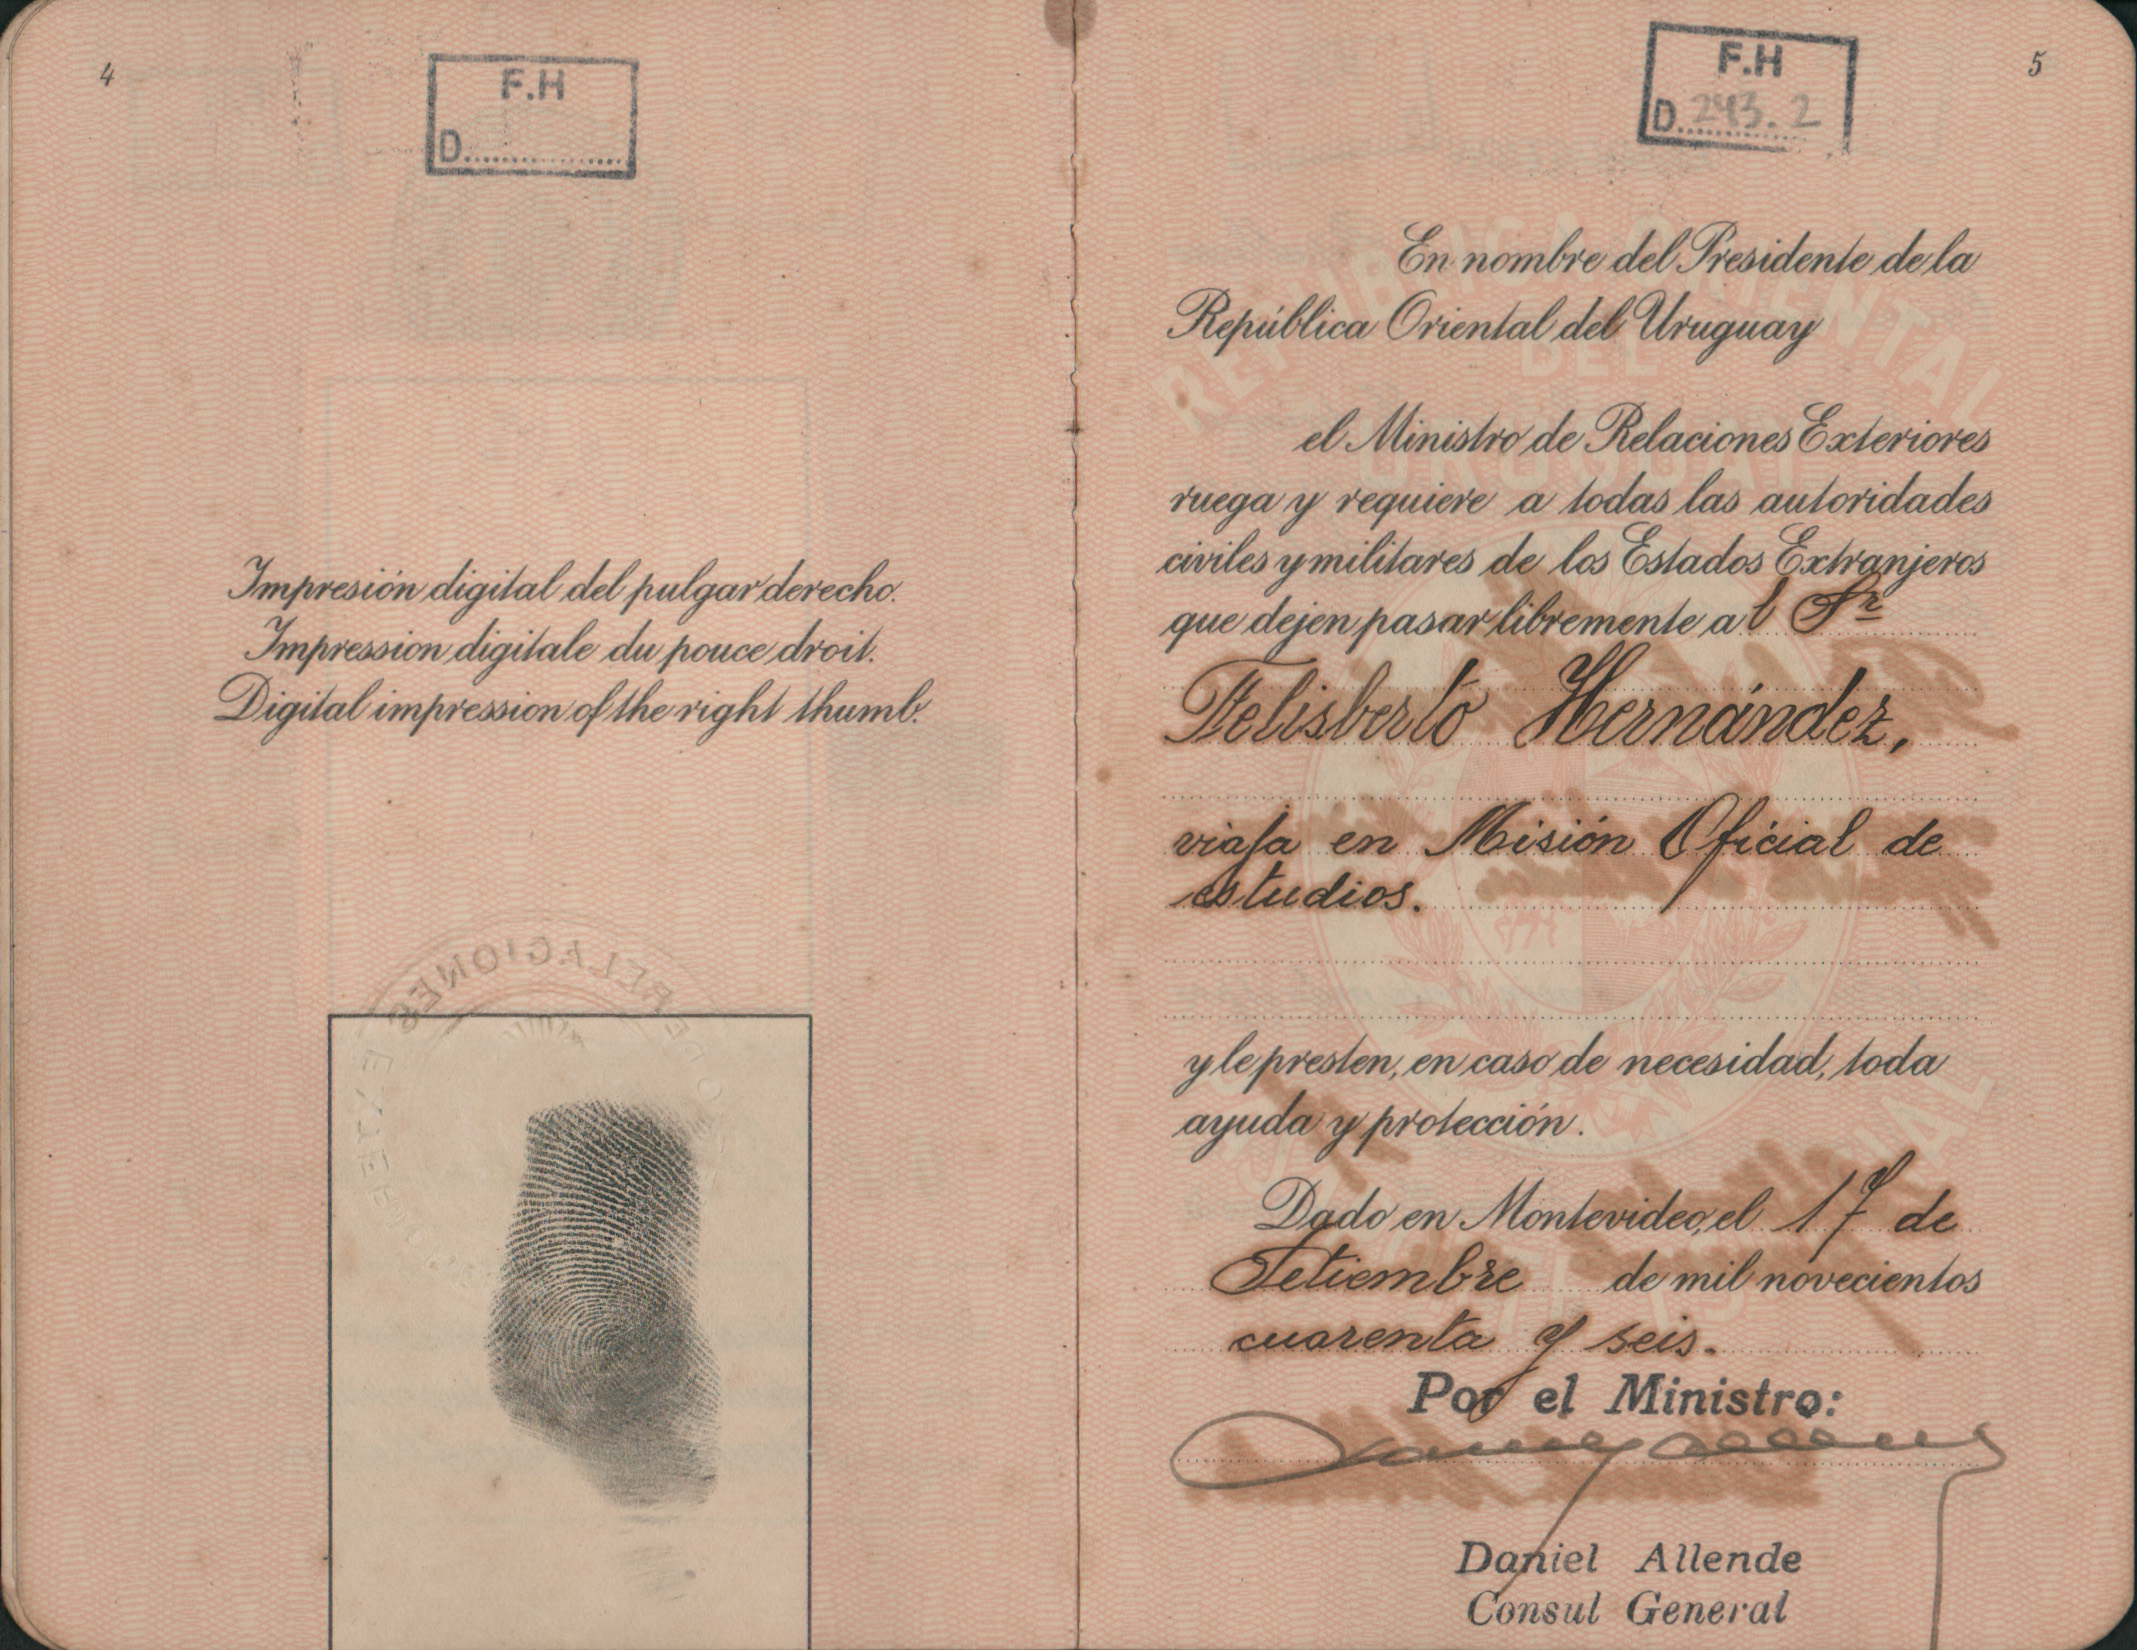 4
F.H
D
Impresión digital del pulgar derecho.
Impression digitale du pouce droit.
Digital impression of the right thumb.
RELACIONES
5
F.H
D. 243.2
REPUBLICA ORIENTAL
DEL
URUGUAY
En nombre del Presidente de la
República Oriental del Uruguay
el Ministro de Relaciones Exteriores
ruega y requiere a todas las autoridades
civiles y militares de los Estados Extranjeros
que dejen pasar libremente al Sr
Felisberto Hernández,
viaja en Misión Oficial de
estudios.
y le presten, en caso de necesidad, toda
ayuda y protección.
Dado en Montevideo, el 17 de
Setiembre de mil novecientos
cuarenta y seis.
Por el Ministro:
Daniel Allende
Consul General